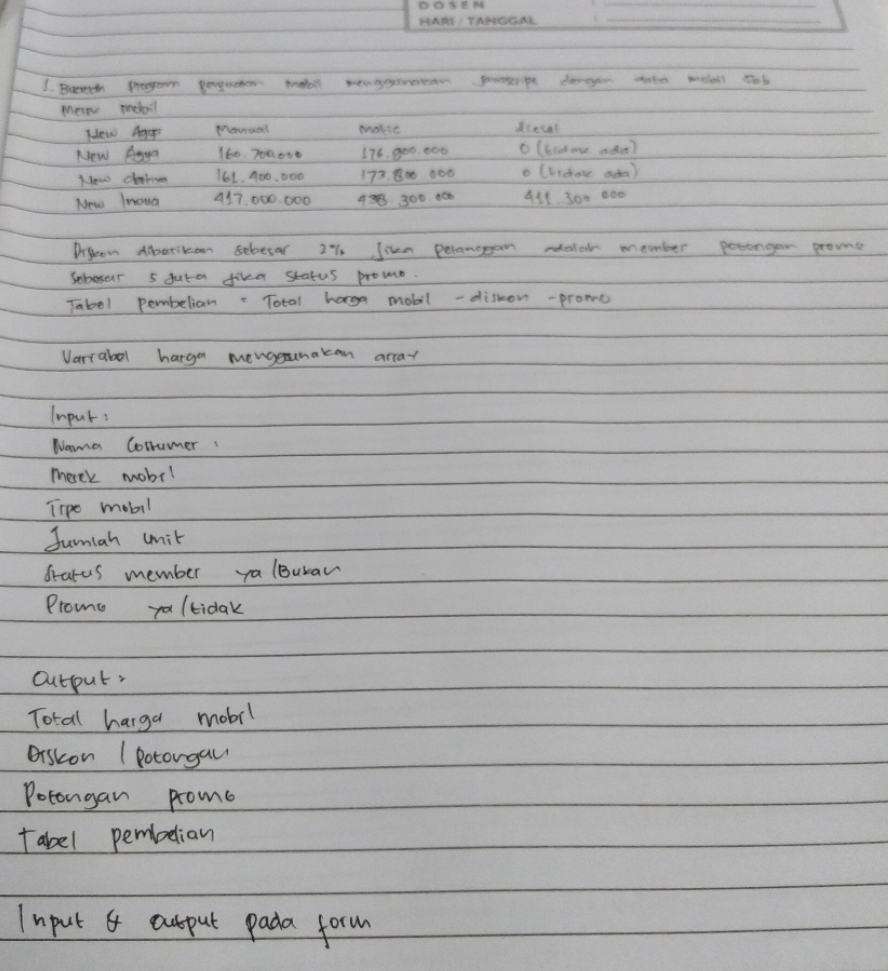 DOSEN :
HARI / TANGGAL :
1. Buatlah program penjualan mobil menggunakan javascript dengan data mobil sbb
Merk mobil
New Manual Matic diesel
New Agya 160.700.000 176.800.000 0 (tidak ada)
New 161.400.000 173.800.000 0 (tidak ada)
New Inova 417.000.000 438.300.000 411.300.000
Diskon diberikan sebesar 2% jika pelanggan adalah member potongan promo
sebesar 5 juta jika status promo.
Tabel pembelian = Total harga mobil - diskon - promo
Variabel harga menggunakan array
Input :
Nama Costumer :
Merek mobil
Tipe mobil
Jumlah unit
Status member ya/Bukan
Promo ya/tidak
Output :
Total harga mobil
Diskon / potongan
Potongan promo
Tabel pembelian
Input & output pada form